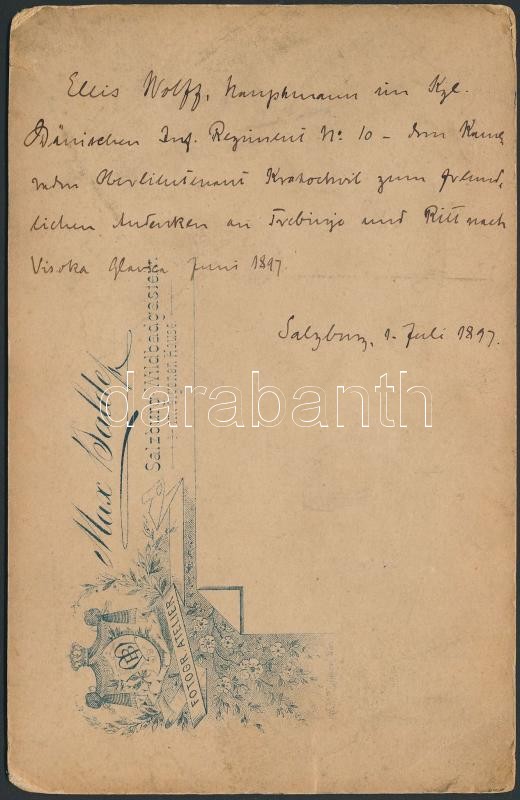 Ellis Wolff, Hauptmann im Kgl.
Dänischen Inf. Regiment No 10 – dem Kame-
raden Oberlieutenant Kratochvil zum freund-
lichen Andenken an Trebinje und Ritt nach
Visoka Glavica Juni 1897.
Salzburg, 1. Juli 1897.
Max Balde
Salzburg, Wildbadgastein.
im eigenen Hause.
FOTOGR. ATELIER.
darabanth